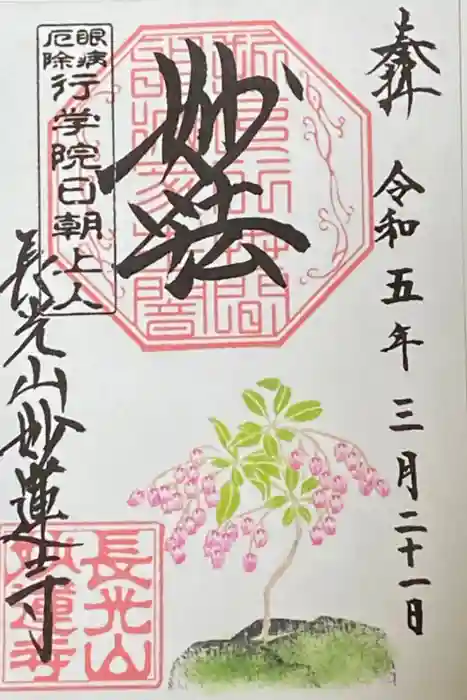 奉拝
令和五年三月二十一日
妙法
眼病
厄除
行学院日朝上人
長光山妙蓮寺
長光山
妙蓮寺